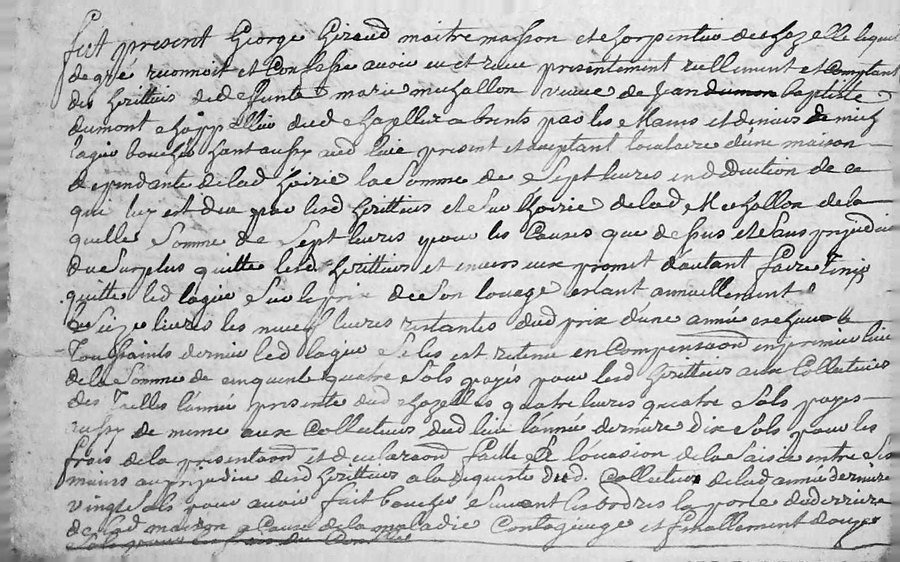 fut present George Giraud maitre masson et charpentier de chazelle lequel
de gré reconnoit et confesse avoir eu et receu presentement reellement et comptant
des herittiers de deffunte marie michallon veuve de Jean dumon baptiste
dumont chappellier dud chazelles absents par les mains et deniers de
lagier boucher dud lieu present et acceptant locataire d'une maison
dependante de lad hoirie la somme de sept livres en deduction de ce
que luy est deu par lesd herittiers et sur lhoirie de lad Michallon de la
quelle somme de sept livres pour les causes que dessus et sans prejudice
du surplus quitte lesd herittiers et envers eux promet d'autant faire tenir
quitte led lagier sur le prix de son louage estant annuellement
de seize livres les neuf livres restantes dud prix dune année escheue a
Toussaints dernier led lagier se les est retenu en compensaon en premier lieu
de la somme de cinquente quatre sols payés pour lesd herittiers aux collecteurs
des Tailles l'année presente dud chazelles quatre livres quatre sols payes
aussy de meme aux collecteurs dud lieu lannée derniere dix sols pour les
frais de la presentaon et declaraon faitte a l'occasion de la saisie entre ses
mains au prejudice desd herittiers a la requeste dud. Collecteur de lad année derniere
vingt sols pour avoir fait boucher suivant les ordres la porte du derriere
de lad maison a cause de la maladie contagieuse et finallement douze
sols pour les frais du